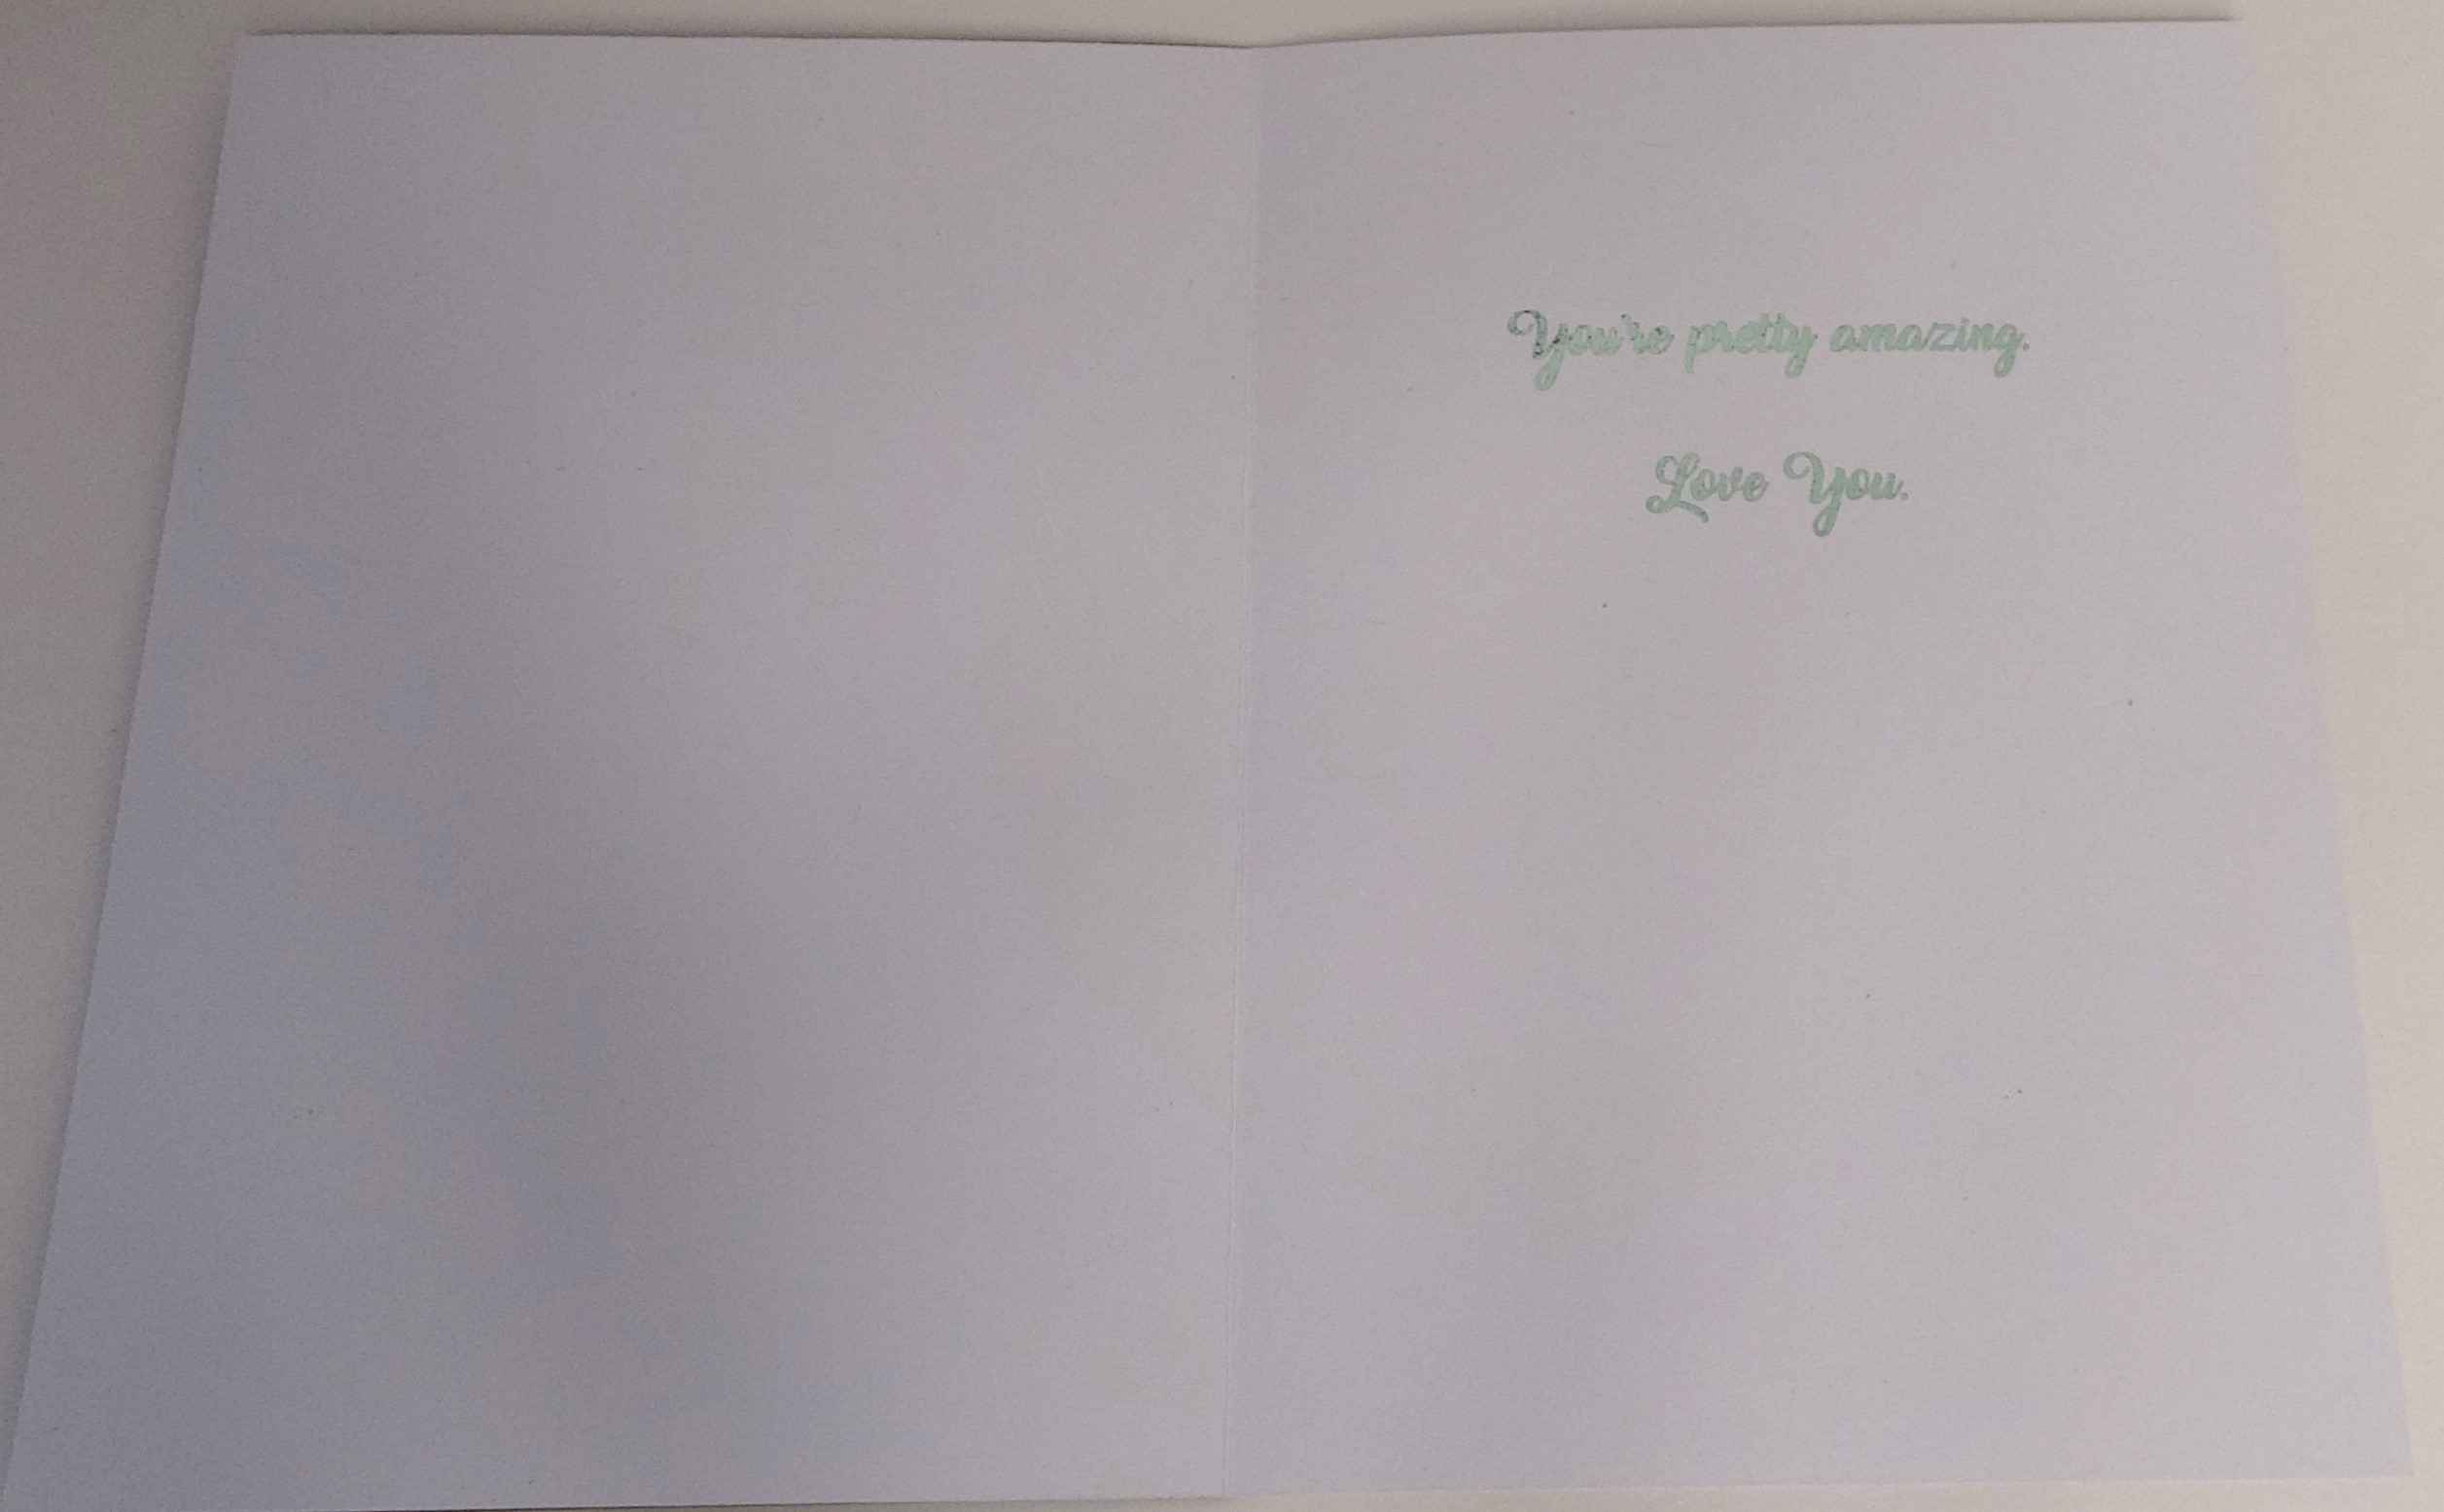 You're pretty amazing.
Love You.